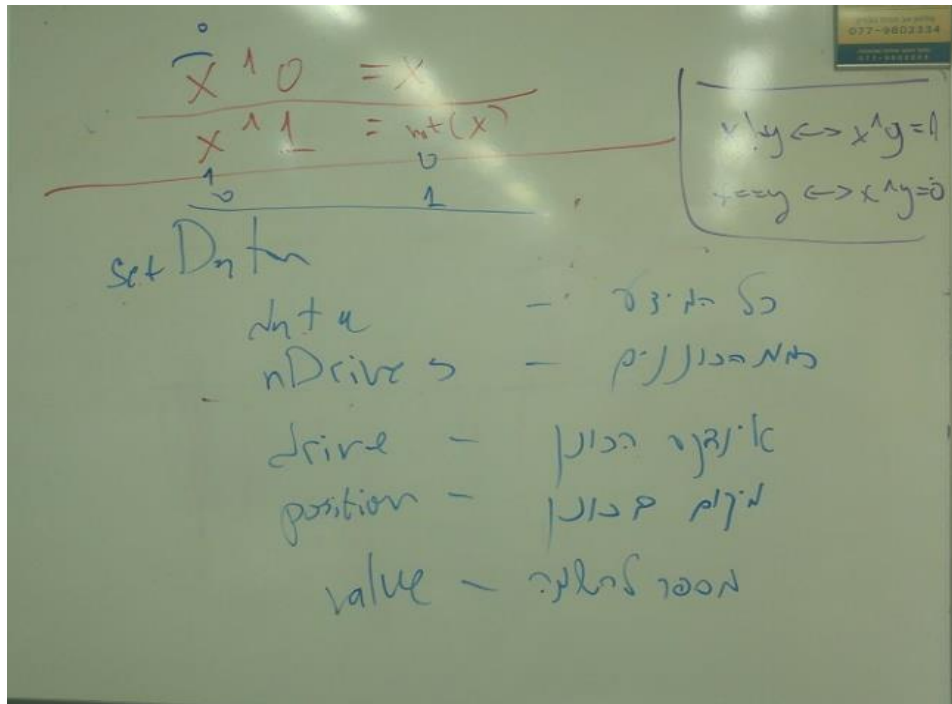 0
x ^ 0 = x
x ^ 1 = not(x)
1 0
0 1
077-9602334
x!=y <-> x^y=1
x==y <-> x^y=0
setData
data - כל המידע
nDrives - כמות הכוננים
drive - אינדקס הכונן
position - מיקום בכונן
value - מספר להשמה